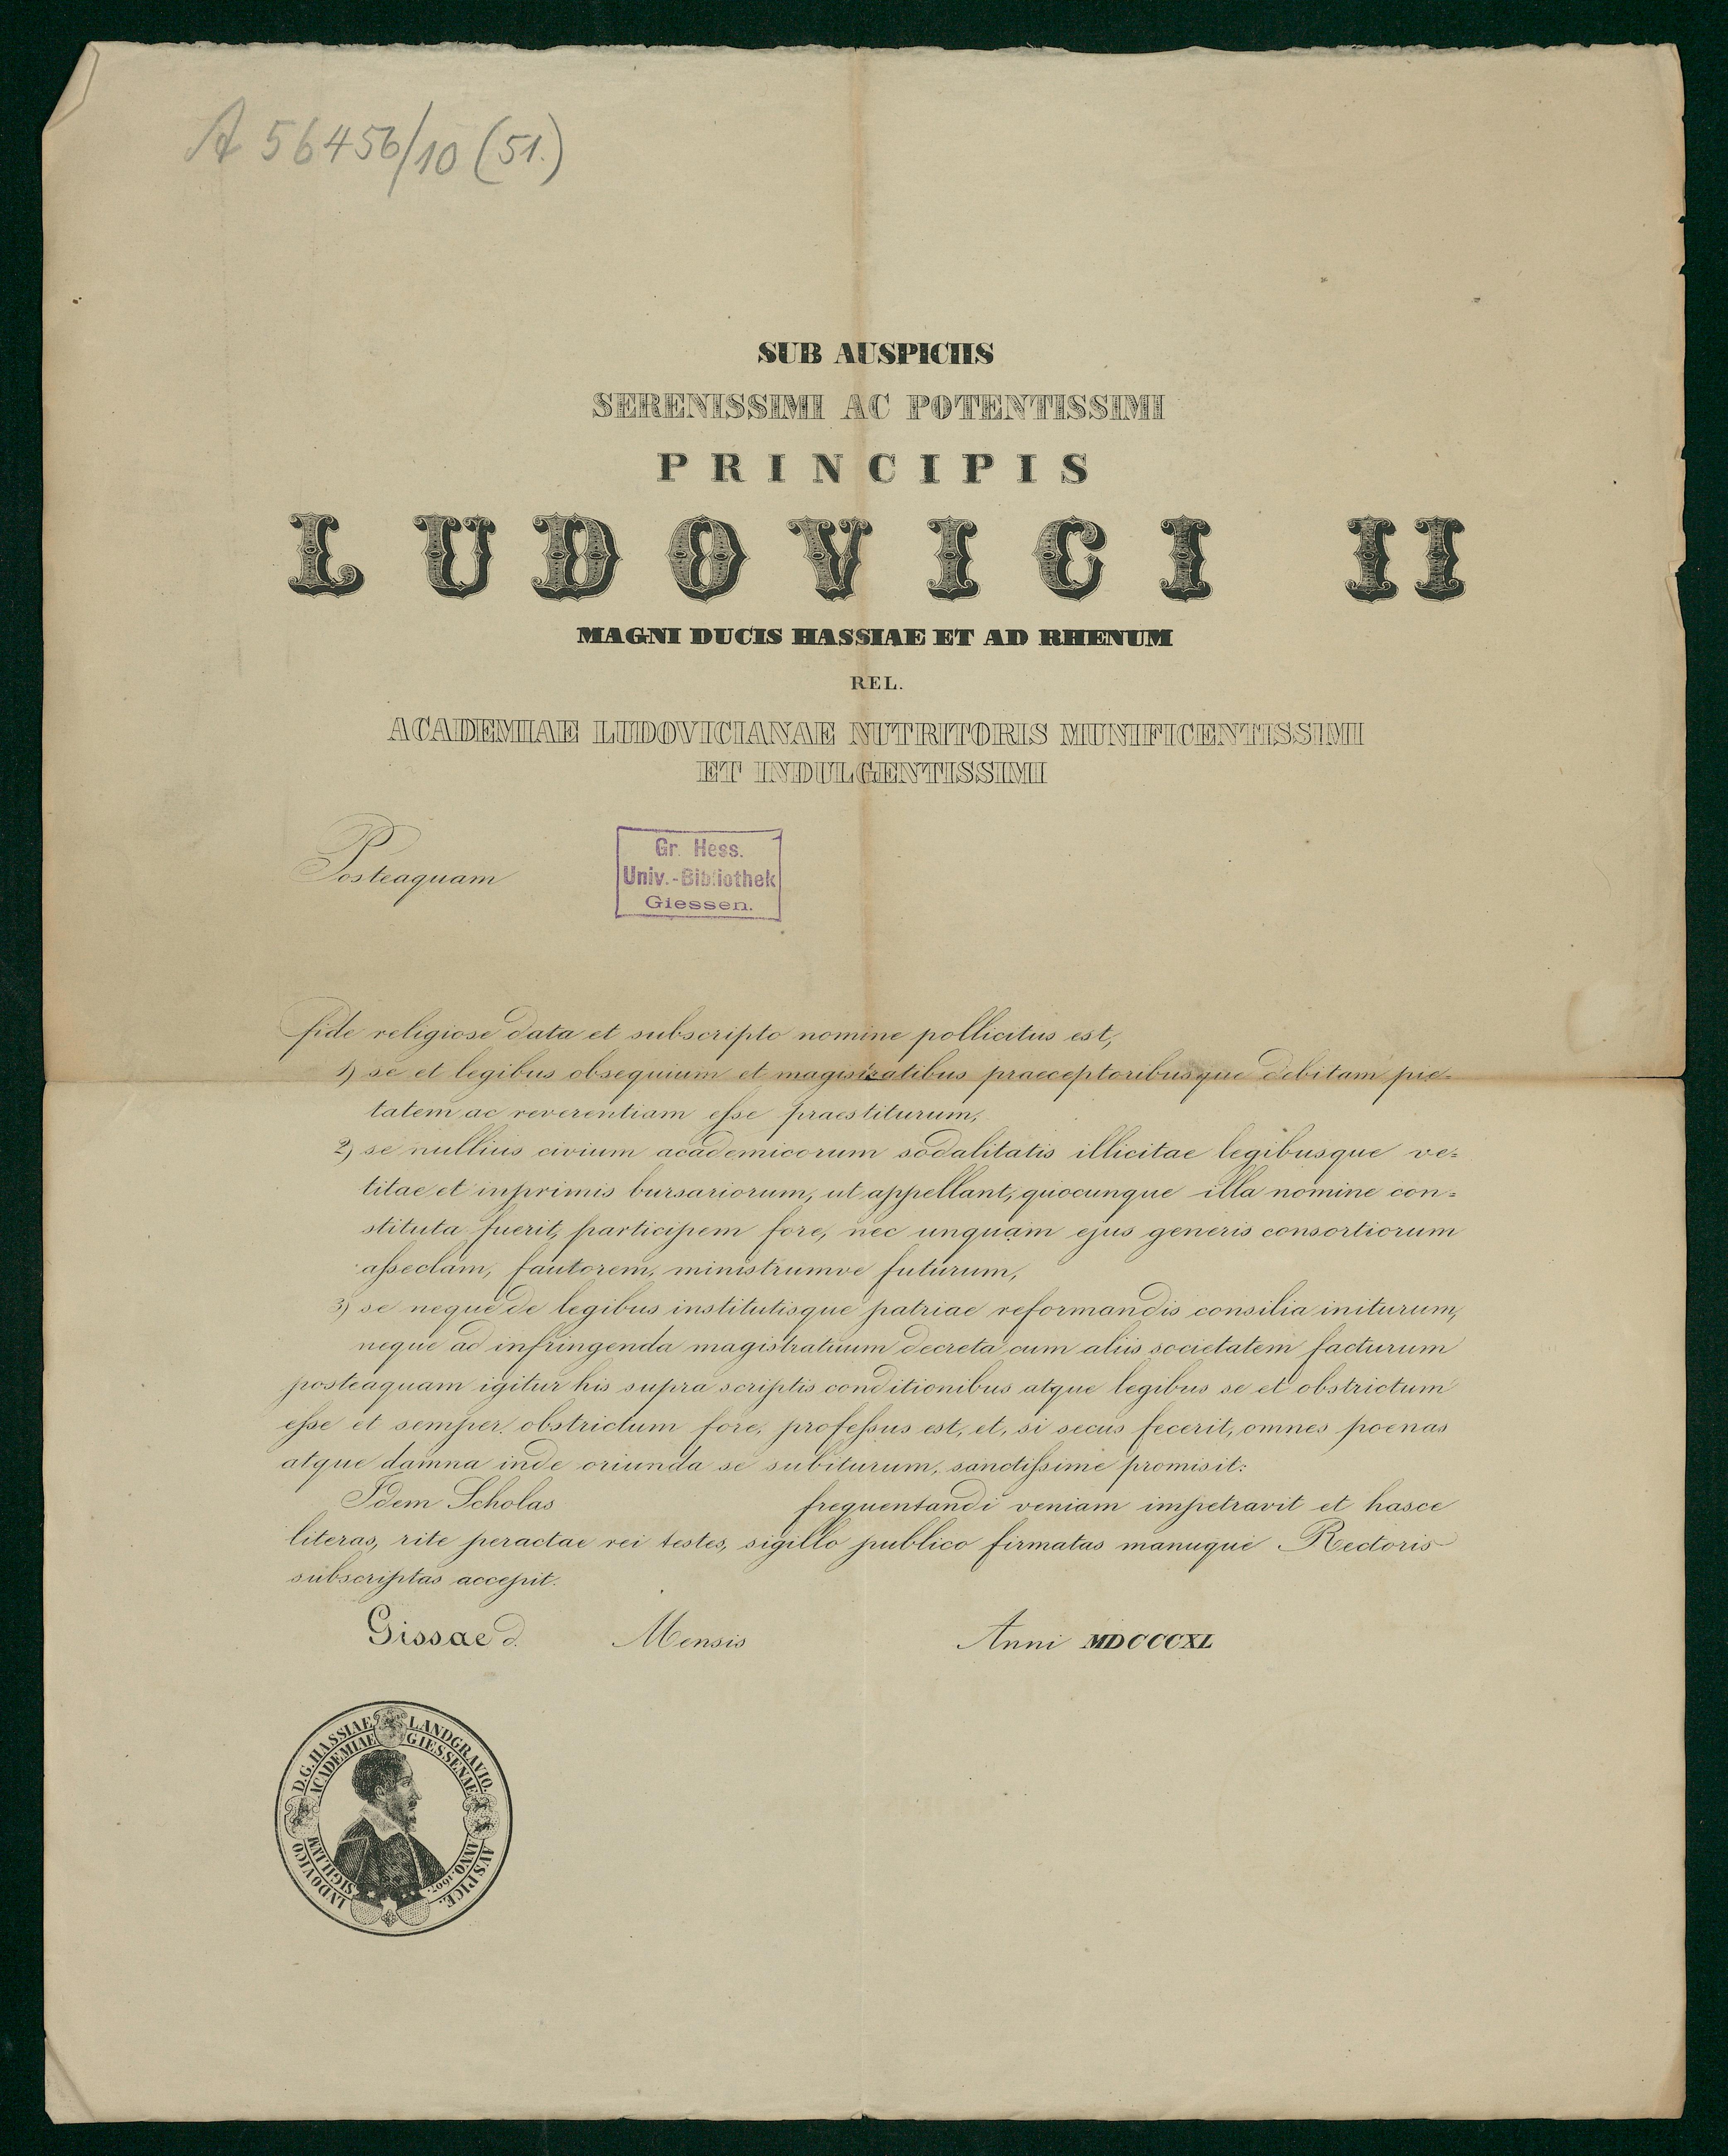 A 56456/10 (51.)
SUB AUSPICIIS
SERENISSIMI AC POTENTISSIMI
PRINCIPIS
LUDOVICI II
MAGNI DUCIS HASSIAE ET AD RHENUM
REL.
ACADEMIAE LUDOVICIANAE NUTRITORIS MUNIFICENTISSIMI
ET INDULGENTISSIMI
Posteaquam
Gr. Hess.
Univ.-Bibliothek
Giessen.
fide religiose data et subscripto nomine pollicitus est,
1) se et legibus obsequium et magistratibus praeceptoribusque debitam pie=
tatem ac reverentiam esse praestiturum,
2) se nullius civium academicorum sodalitatis illicitae legibusque ve=
titae et inprimis bursariorum, ut appellant, quocunque illa nomine con=
stituta fuerit, participem fore, nec unquam ejus generis consortiorum
asseclam, fautorem, ministrumve futurum,
3) se neque de legibus institutisque patriae reformandis consilia initurum,
neque ad infringenda magistratuum decreta cum aliis societatem facturum
posteaquam igitur his supra scriptis conditionibus atque legibus se et obstrictum
esse et semper obstrictum fore, professus est, et, si secus fecerit, omnes poenas
atque damna inde oriunda se subiturum, sanctissime promisit:
Idem Scholas frequentandi veniam impetravit et hasce
literas, rite peractae rei testes, sigillo publico firmatas manuque Rectoris
subscriptas accepit.
Gissae d. Mensis Anni MDCCCXL
LVDOVICO D.G. HASSIAE LANDGRAVIO. AVSPICE.
SIGILLVM ACADEMIAE GIESSENAE ANNO. 1607.